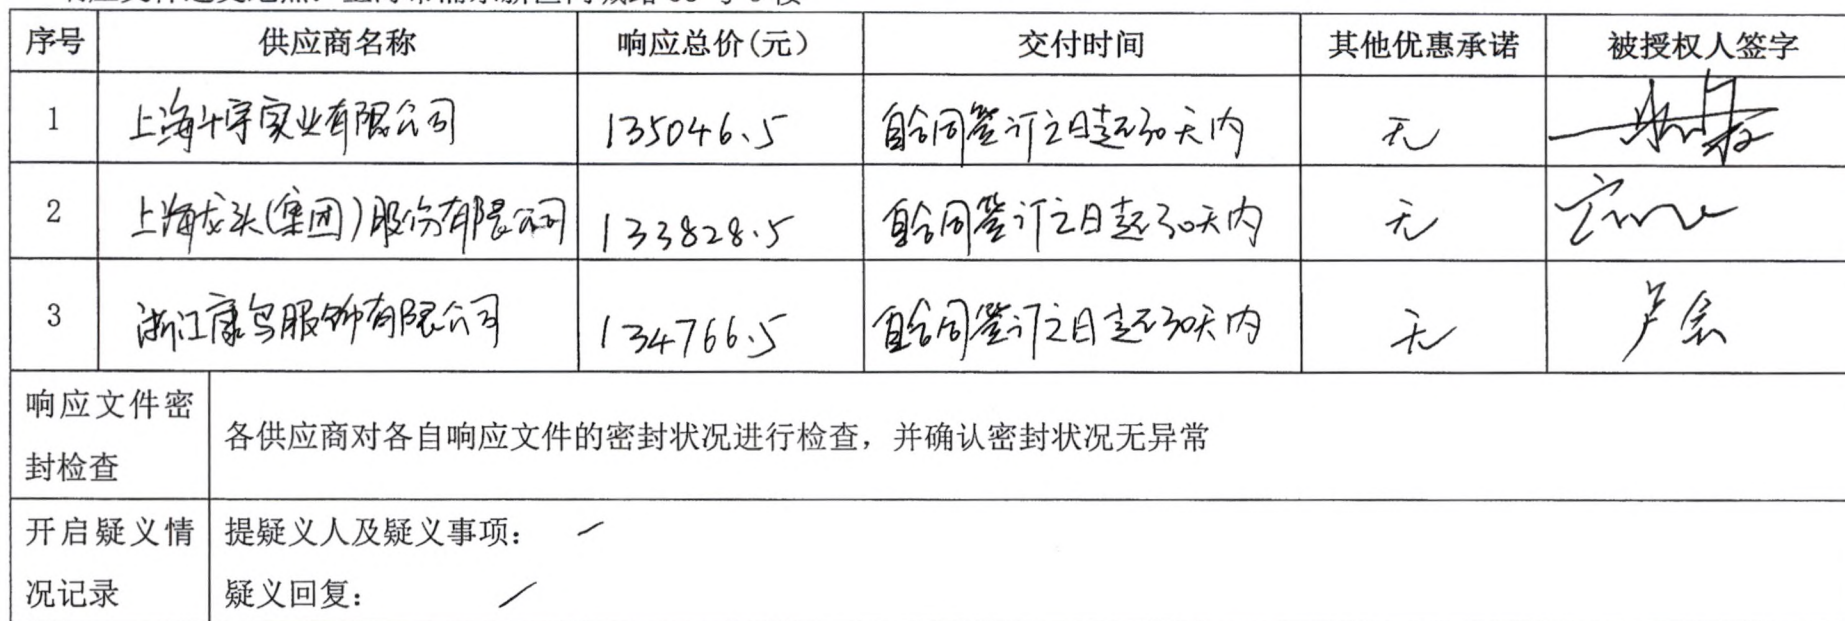 序号 供应商名称 响应总价(元) 交付时间 其他优惠承诺 被授权人签字
1 上海十字实业有限公司 135046.5 自合同签订之日起30天内 无
2 上海龙头(集团)股份有限公司 133828.5 自合同签订之日起30天内 无
3 浙江康鸟服饰有限公司 134766.5 自合同签订之日起30天内 无
响应文件密
封检查
各供应商对各自响应文件的密封状况进行检查，并确认密封状况无异常
开启疑义情
况记录
提疑义人及疑义事项： /
疑义回复： /